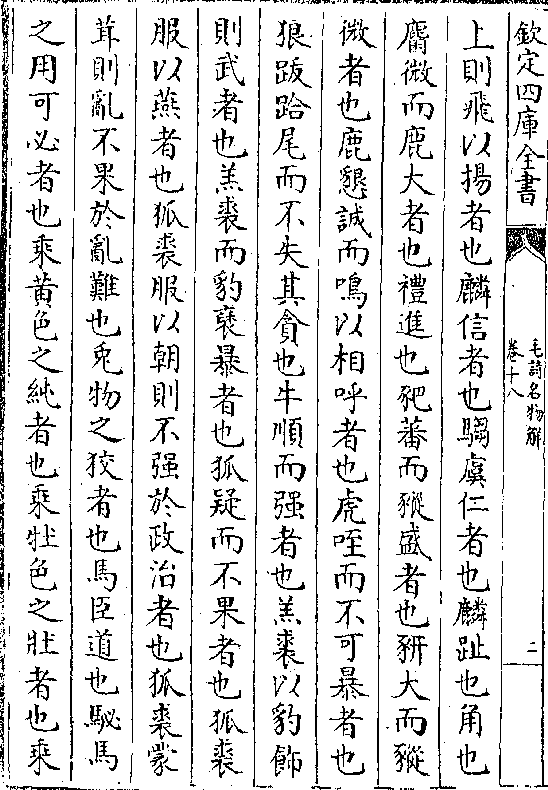 欽定四庫全書
毛詩名物解
卷十八
二
上則飛以揚者也麟信者也騶虞仁者也麟趾也角也
麕微而鹿大者也禮進也豝蕃而豵盛者也豣大而豵
微者也鹿懇誠而鳴以相呼者也虎咥而不可暴者也
狼跋跲尾而不失其貪也牛順而强者也羔裘以豹飾
則武者也羔裘而豹褎暴者也狐疑而不果者也狐裘
服以燕者也狐裘服以朝則不强於政治者也狐裘蒙
茸則亂不果於亂難也兎物之狡者也馬臣道也駜馬
之用可必者也乘黄色之純者也乘牡色之壯者也乘